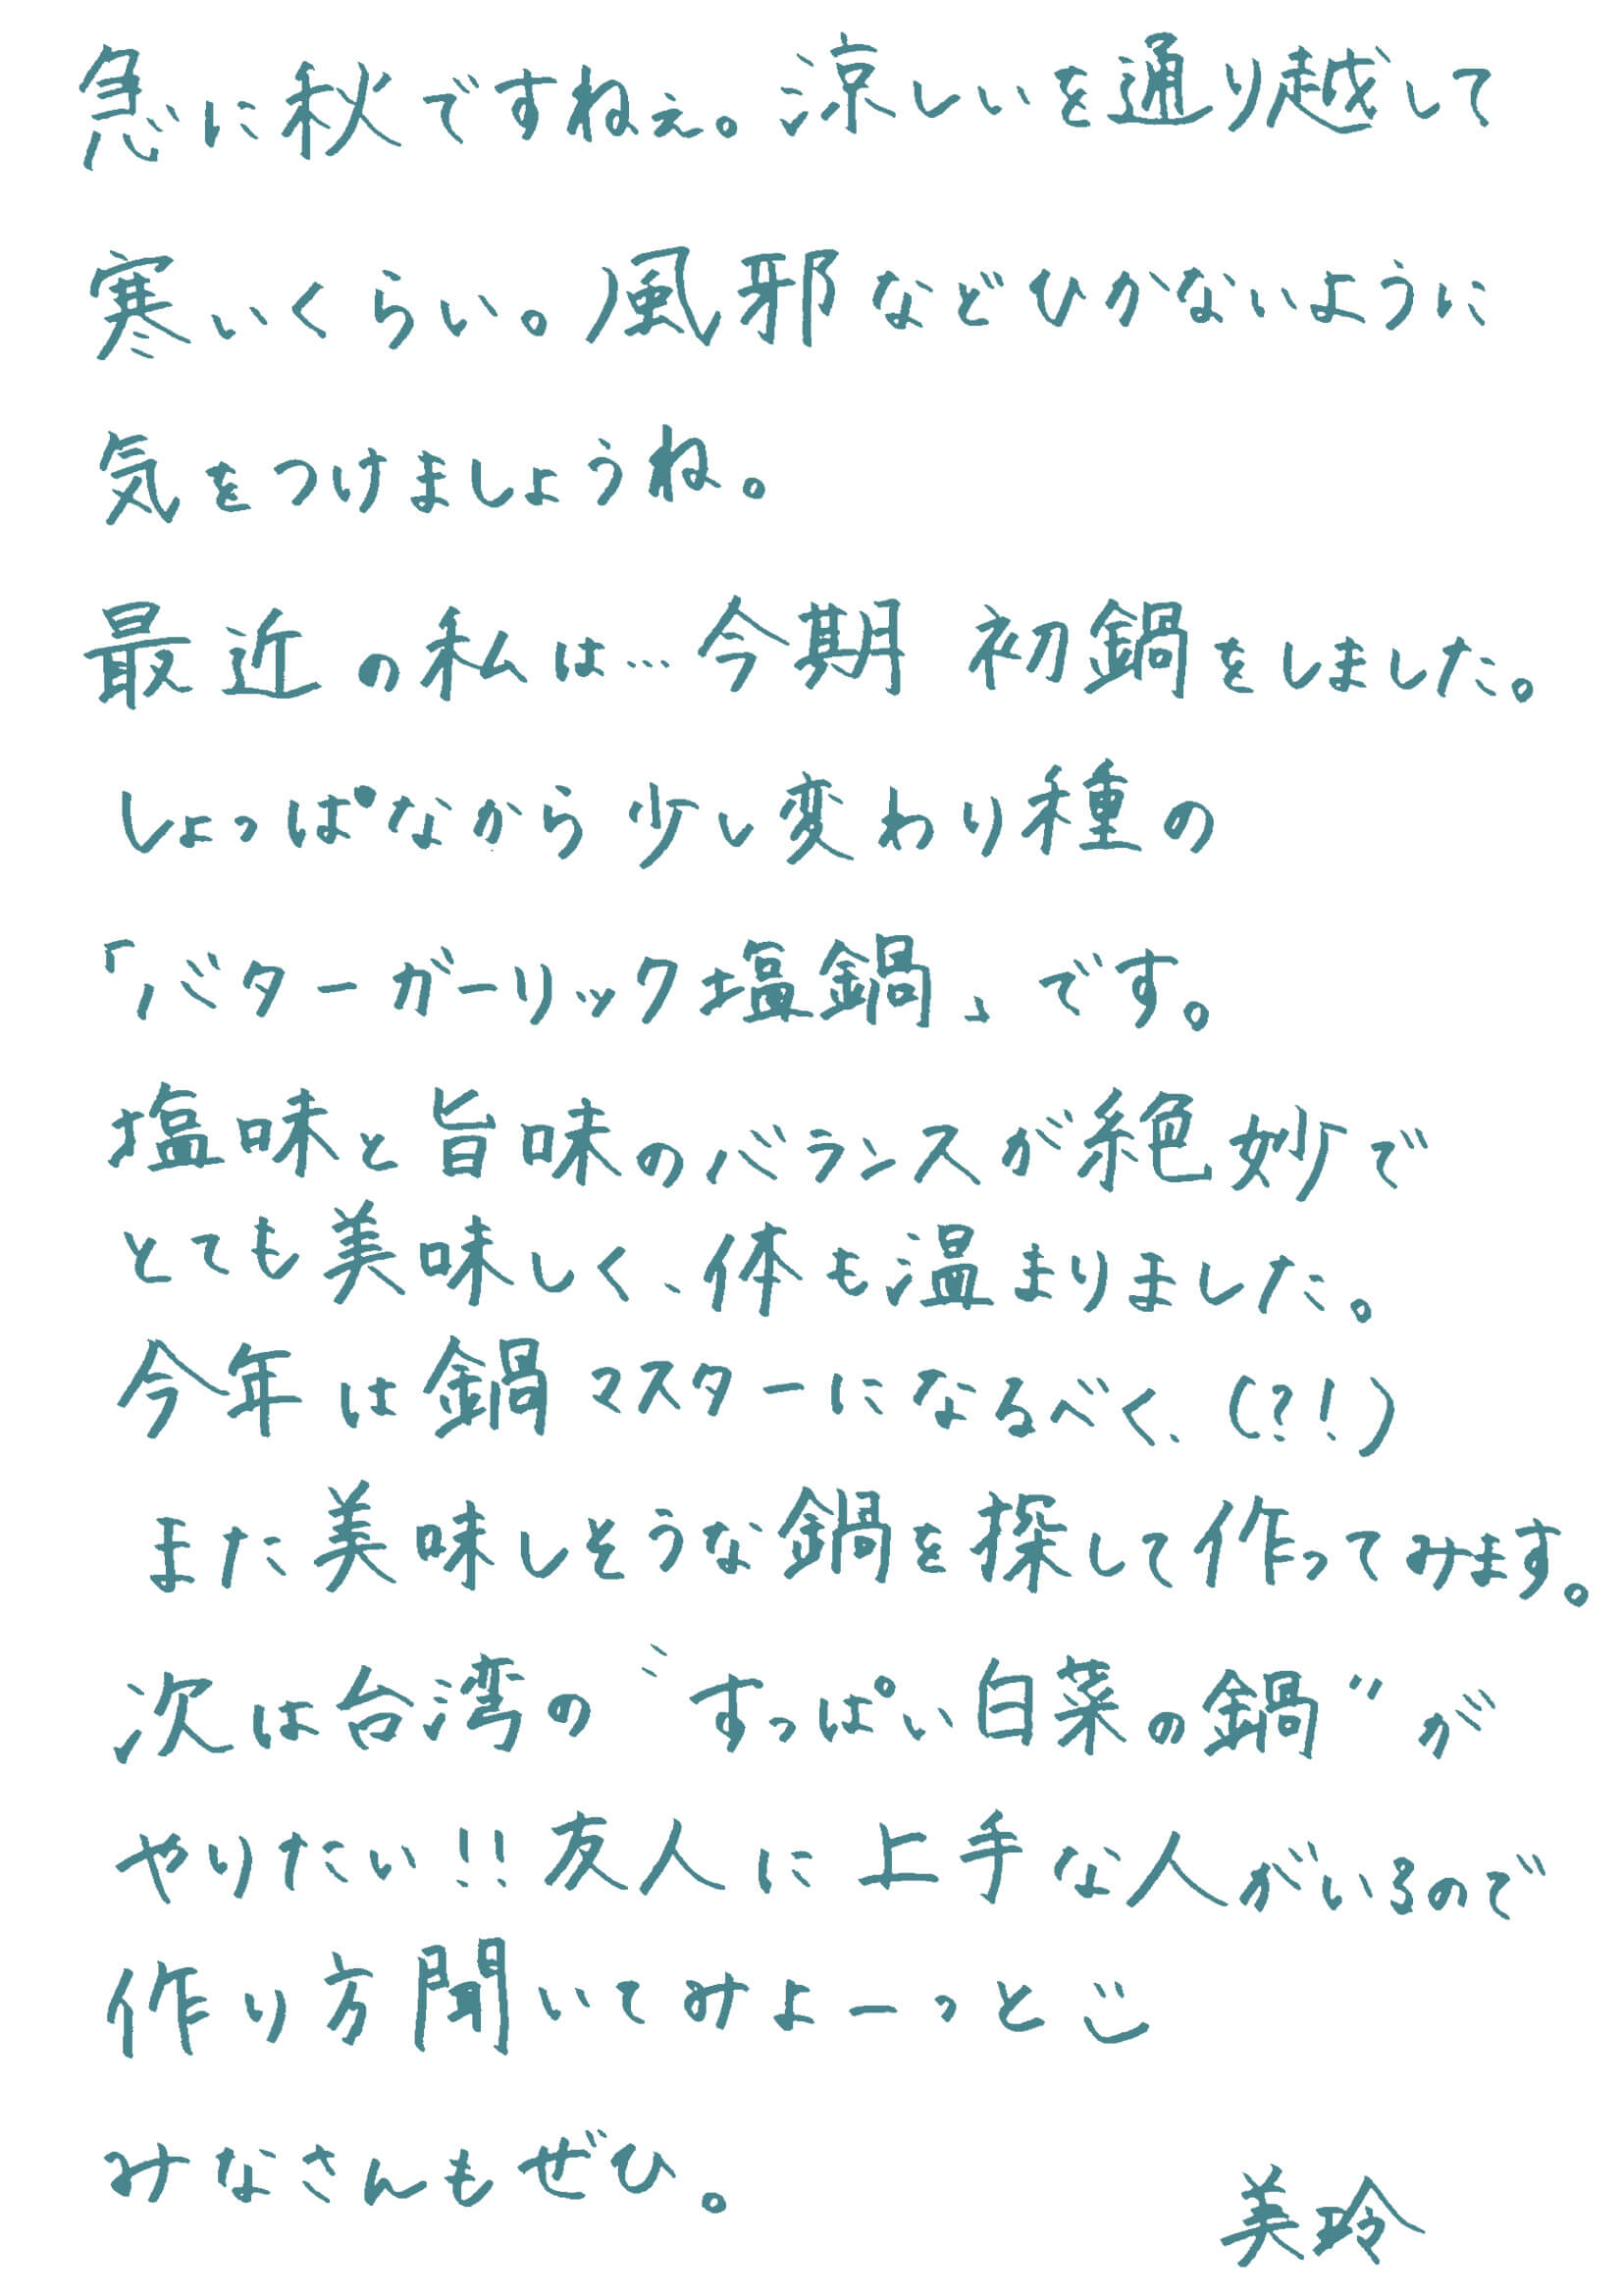 急に秋ですねぇ。涼しいを通り越して
寒いくらい。風邪などひかないように
気をつけましょうね。
最近の私は…今期 初鍋をしました。
しょっぱなから少し変わり種の
「バターガーリック塩鍋」です。
塩味と旨味のバランスが絶妙で
とても美味しく、体も温まりました。
今年は鍋マスターになるべく、(?!)
また美味しそうな鍋を探して作ってみます。
次は台湾の〝すっぱい白菜の鍋〟が
やりたい!!友人に上手な人がいるので
作り方聞いてみよーっと
みなさんもぜひ。
美玲